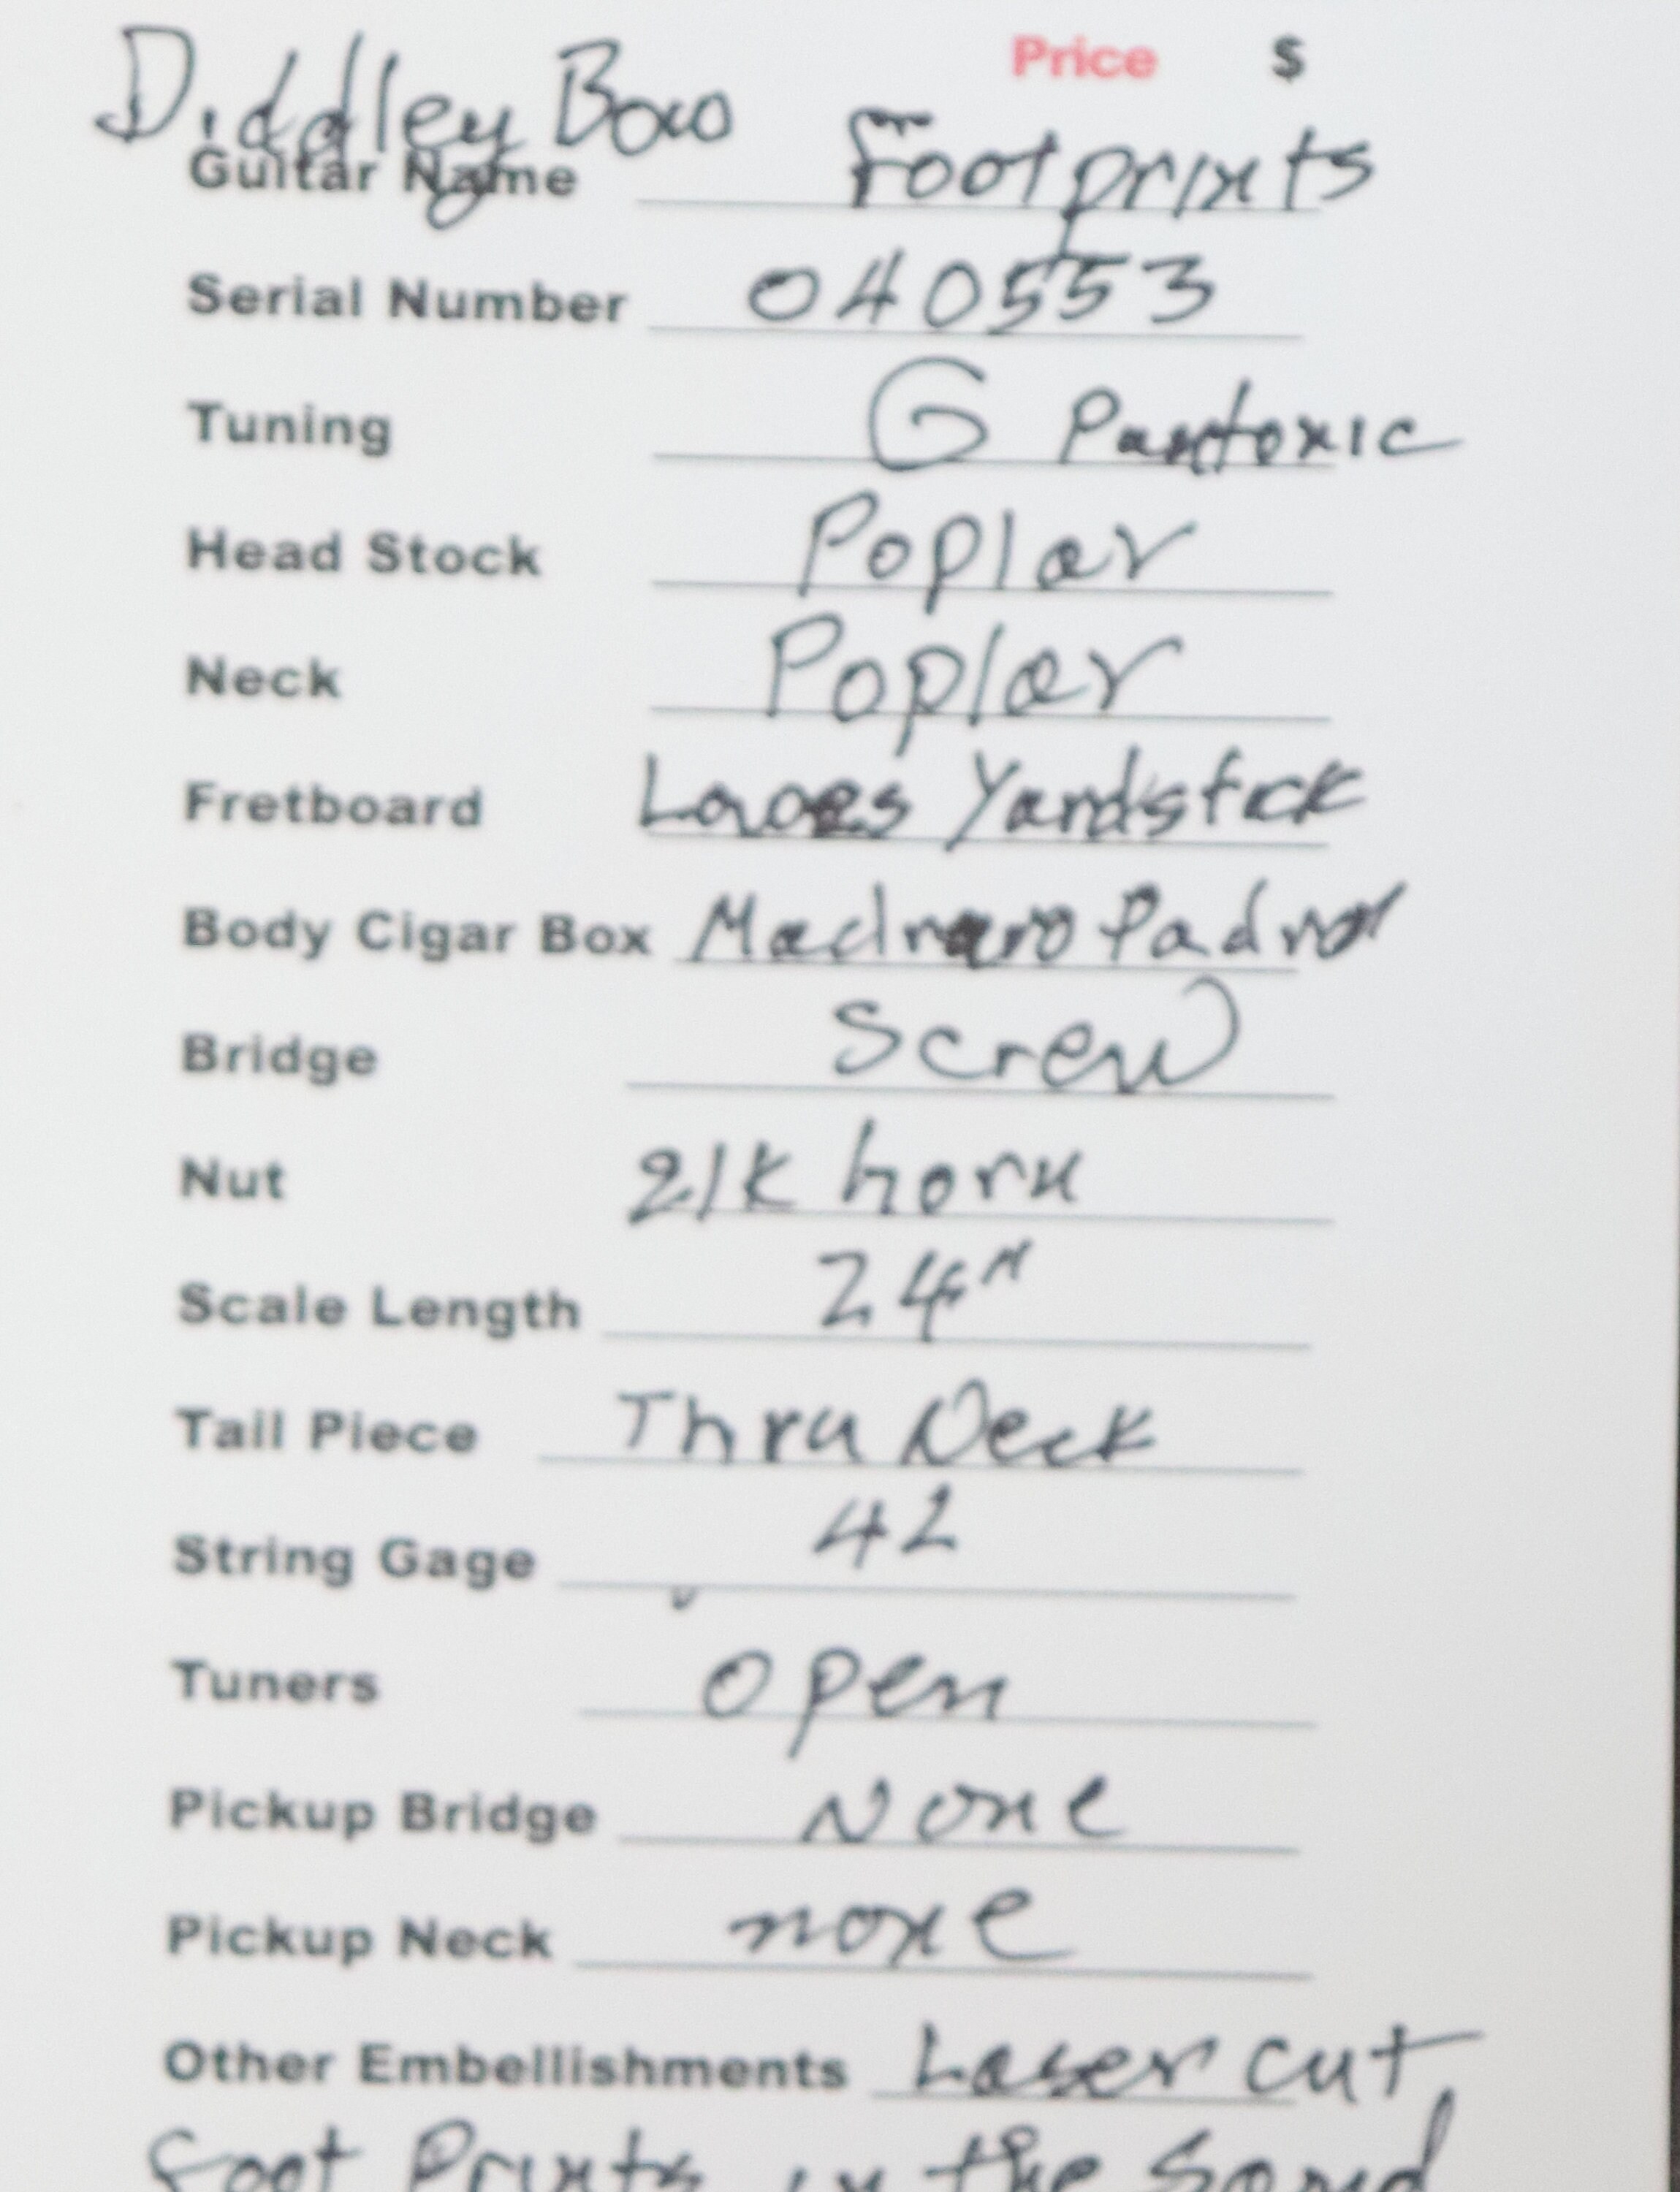 Price $
Diddley Bow
Guitar Name Footprints
Serial Number 040553
Tuning G Pantonic
Head Stock Poplar
Neck Poplar
Fretboard Lowes Yardstick
Body Cigar Box
Bridge Screw
Nut Elk horn
Scale Length 24"
Tail Piece Thru Neck
String Gage 42
Tuners Open
Pickup Bridge None
Pickup Neck none
Other Embellishments Laser cut,
Foot Prints in the Sand